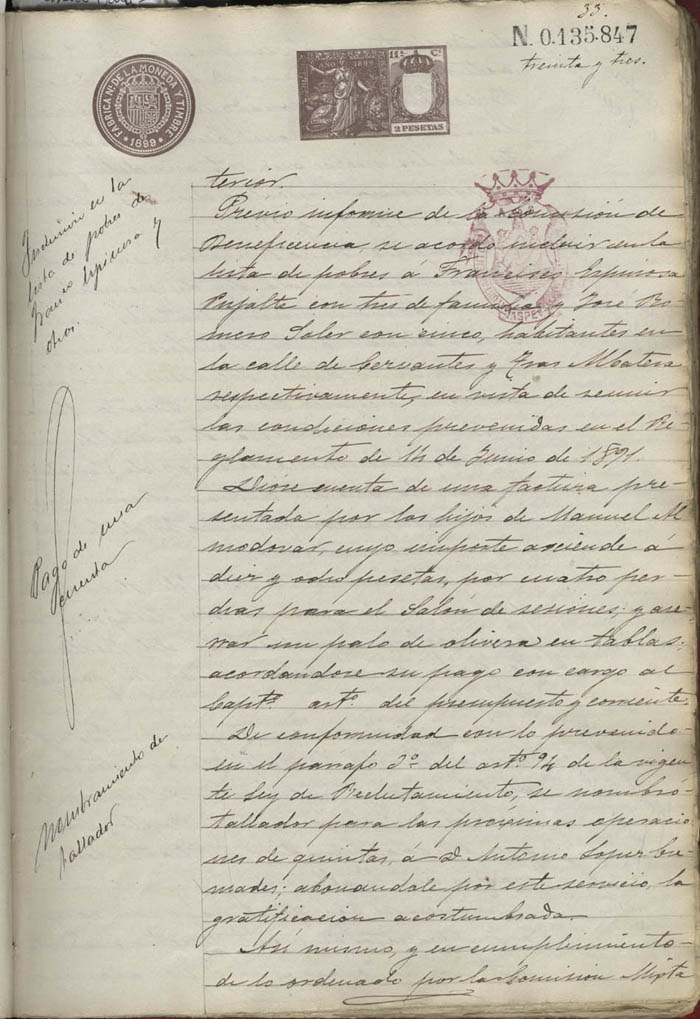 33.
N. 0.135.847
treinta y tres.
FABRICA Nl. DE LA MONEDA Y TIMBRE
1899
AÑO 1899
11ª C.
2 PESETAS
ASPE
Inclusion en la
lista de pobres de
Franco Espinosa y
otros.
terior.
Prévio informe de la Comisión de
Beneficencia, se acordó incluir en la
lista de pobres á Francisco Espinosa
Perjalte con tres de familia y José Ro-
mero Soler con cinco, habitantes en
la calle de Cervantes y Tras Matera
respectivamente, en vista de reunir
las condiciones prevenidas en el Re-
glamento de 14 de Junio de 1891.
Pago de una
cuenta
Dióse cuenta de una factura pre-
sentada por los hijos de Manuel Al-
modovar, cuyo importe asciende á
diez y ocho pesetas, por cuatro per-
chas para el Salón de sesiones, y aser-
rar un palo de olivera en tablas,
acordandose su pago con cargo al
Captº. artº. del presupuesto corriente.
Nombramiento de
tallador
De conformidad con lo prevenido
en el parrafo 3º del artº. 94 de la vigen-
te Ley de Reclutamiento, se nombró
tallador para las proximas operacio-
nes de quintas, á D. Antonio Soper
abonandole por este servicio, la
gratificacion acostumbrada.
Asi mismo, y en cumplimiento
de lo ordenado por la Comision Mixta